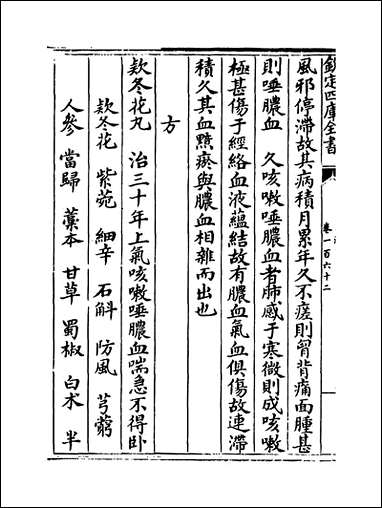 欽定四庫全書
卷一百六十二
風邪停滯故其病積月累年久不瘥則胷背痛面腫甚
則唾膿血　久咳嗽唾膿血者肺感于寒微則成咳嗽
極甚傷于經絡血液蘊結故有膿血氣血俱傷故連滯
積久其血黯瘀與膿血相雜而出也
方
欵冬花丸　治三十年上氣咳嗽唾膿血喘急不得卧
欵冬花　紫菀　細辛　石斛　防風　芎藭
人參　當歸　藁本　甘草　蜀椒　白朮　半